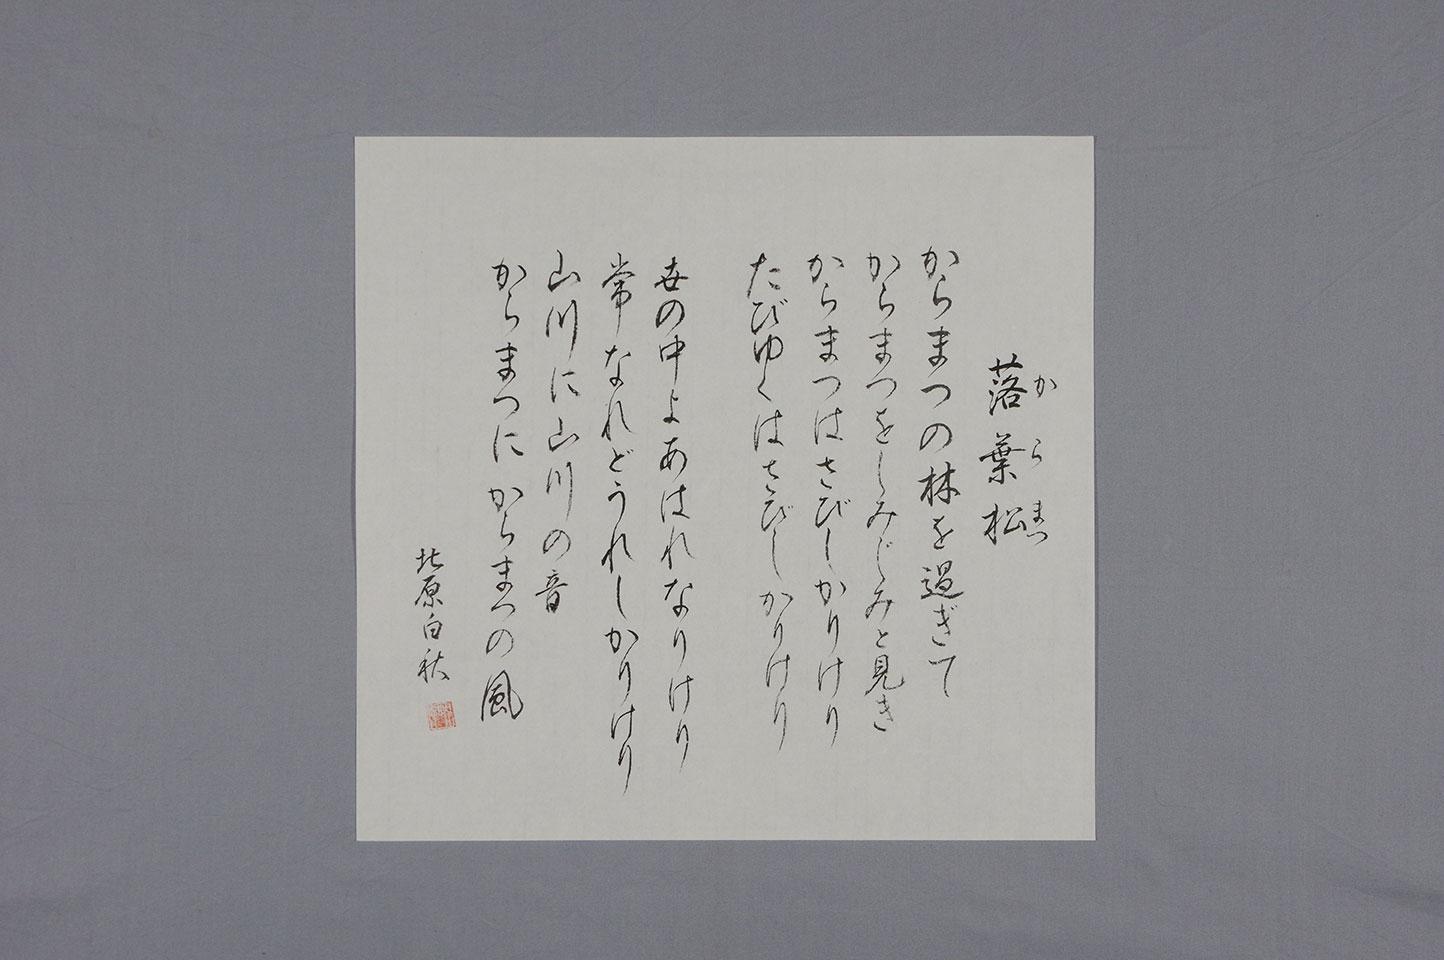 落葉松
からまつ
からまつの林を過ぎて
からまつをしみじみと見き
からまつはさびしかりけり
たびゆくはさびしかりけり
世の中よあはれなりけり
常なれどうれしかりけり
山川に山川の音
からまつにからまつの風
北原白秋